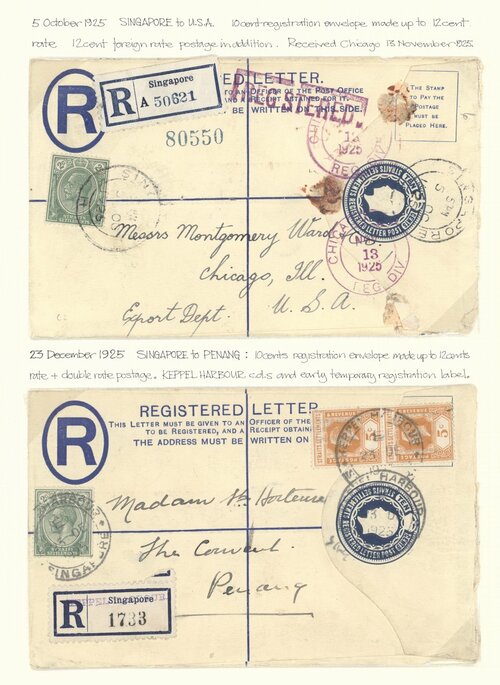 5 October 1925 SINGAPORE to U.S.A. 10 cent registration envelope made up to 12 cent
rate 12 cent foreign rate postage in addition. Received Chicago 13 November 1925.
R
Singapore
R A 50621
REGISTERED LETTER.
OFFICER OF THE POST OFFICE
AND A RECEIPT OBTAINED FOR IT.
BE WRITTEN ON THIS SIDE.
REGISTERED.
80550
THE STAMP
TO PAY THE
POSTAGE
MUST BE
PLACED HERE.
13
1925
REG.
STRAITS SETTLEMENTS
REGISTERED LETTER POST
Messrs Montgomery Ward
Chicago, Ill.
Export Dept. U. S. A.
CHICA
NOV
13
1925
REG. DIV.
23 December 1925 SINGAPORE to PENANG : 10cents registration envelope made up to 12cents
rate + double rate postage. KEPPEL HARBOUR c.d.s and early temporary registration label.
R
REGISTERED LETTER
THIS LETTER MUST BE GIVEN TO AN OFFICER OF THE
TO BE REGISTERED, AND A RECEIPT OBTAINED
THE ADDRESS MUST BE WRITTEN ON
& REVENUE
5c
HARBOUR
1925
STRAITS SETTLEMENTS
REGISTERED LETTER POST
Madam St Hortense
The Convent
Penang
HARBOUR
SINGAPORE
R
Singapore
1733